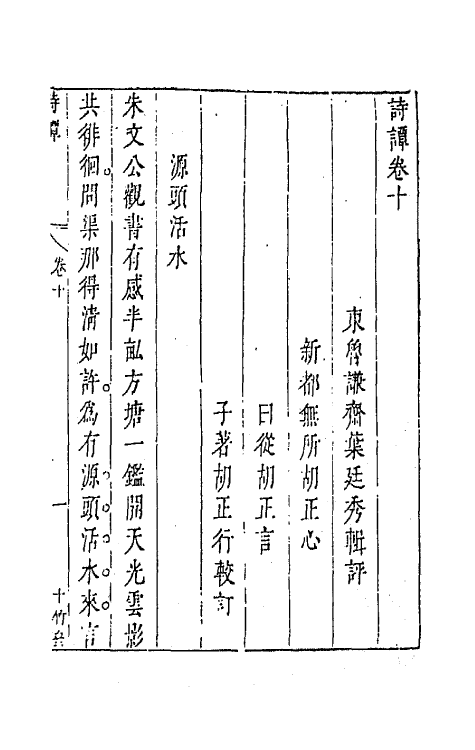 詩譚卷十
東魯謙齋葉廷秀輯評
新都無所胡正心
曰從胡正言
子著胡正行較訂
源頭活水
朱文公觀書有感半畝方塘一鑑開天光雲影
共徘徊問渠那得清如許爲有源頭活水來言
詩譚
卷十
一
十竹齋